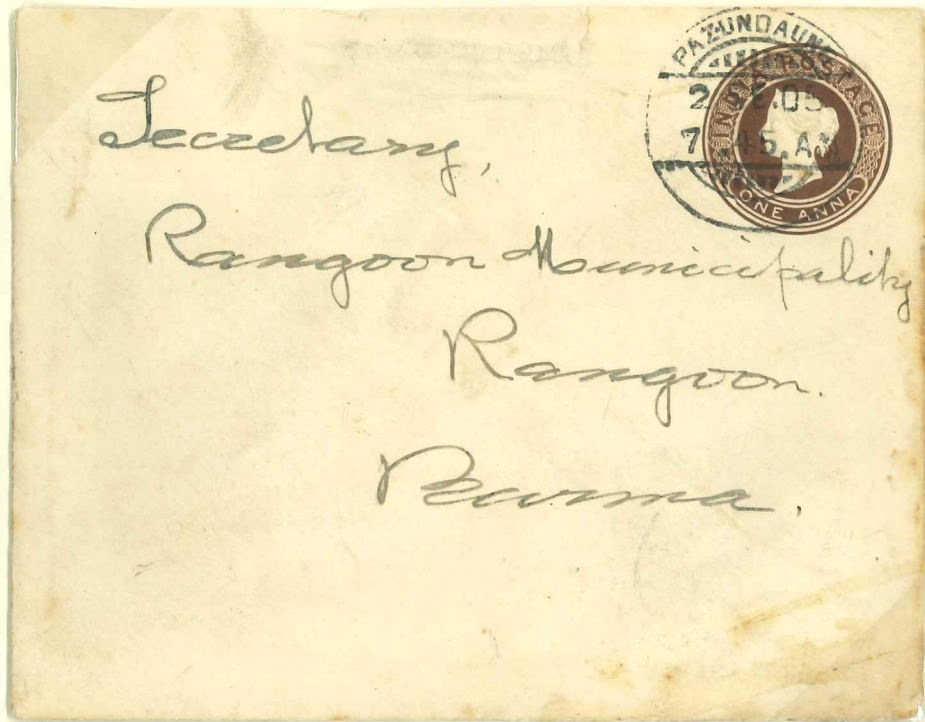 PAZUNDAUN
INDIA POSTAGE
7.45.AM
ONE ANNA
Secretary,
Rangoon Municipality
Rangoon.
Burma.